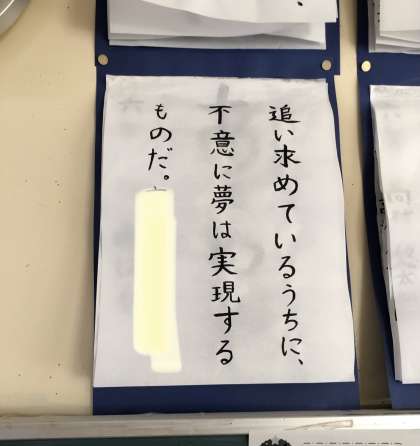 追い求めているうちに、
不意に夢は実現する
ものだ。